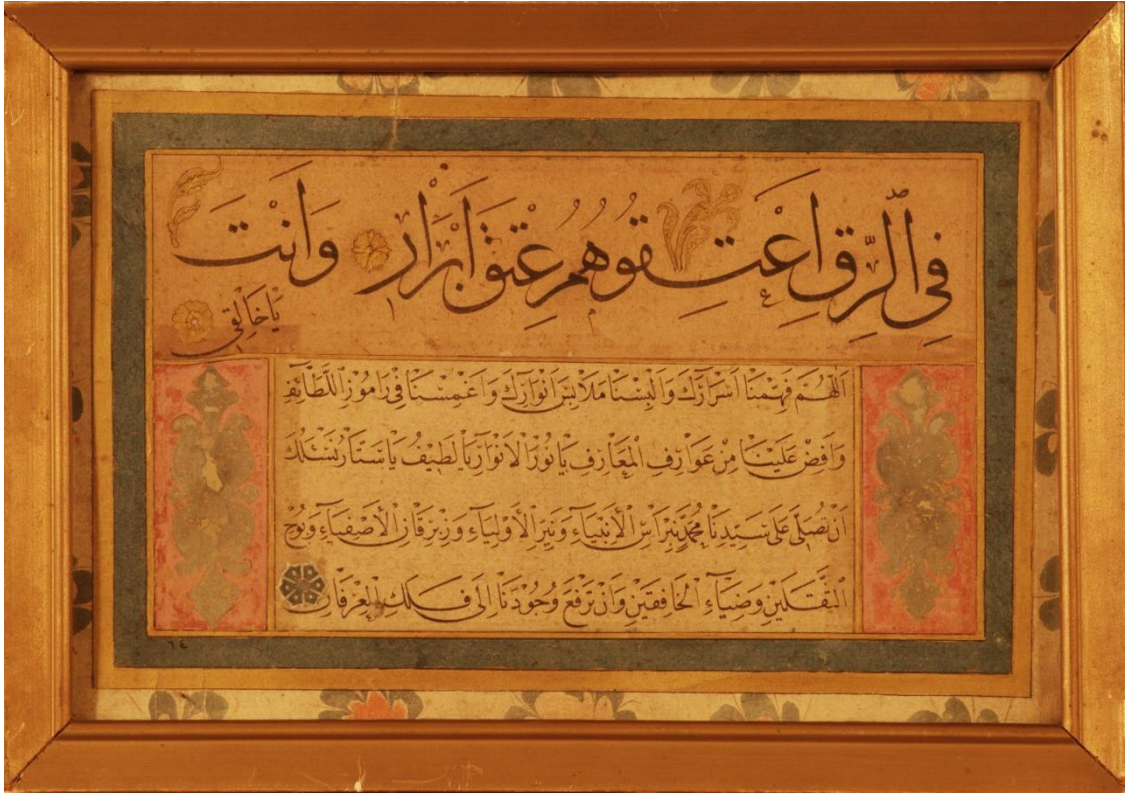 فِي الرِّقِّ اَعْتِقُوهُمْ عِتْقَ اَبْرَارٍ وَاَنْتَ
يَا خَالِقِي
اَللّٰهُمَّ فَهِّمْنَا اَسْرَارَكَ وَاَلْبِسْنَا مَلَابِسَ اَنْوَارِكَ وَاغْمِسْنَا فِي رَامُوزِ اللَّطَائِفِ
وَاَفِضْ عَلَيْنَا مِنْ عَوَارِفِ الْمَعَارِفِ يَا نُورَ الْاَنْوَارِ يَا لَطِيفُ يَا سَتَّارُ نَسْئَلُكَ
اَنْ تُصَلِّيَ عَلَى سَيِّدِنَا مُحَمَّدٍ نِبْرَاسِ الْاَنْبِيَاءِ وَنَيِّرِ الْاَوْلِيَاءِ وَزِبْرِقَانِ الْاَصْفِيَاءِ وَيُوحِ
الثَّقَلَيْنِ وَضِيَاءِ الْخَافِقَيْنِ وَاَنْ تَرْفَعَ وُجُودَنَا اِلَى فَلَكِ الْعِرْفَانِ
٦٤